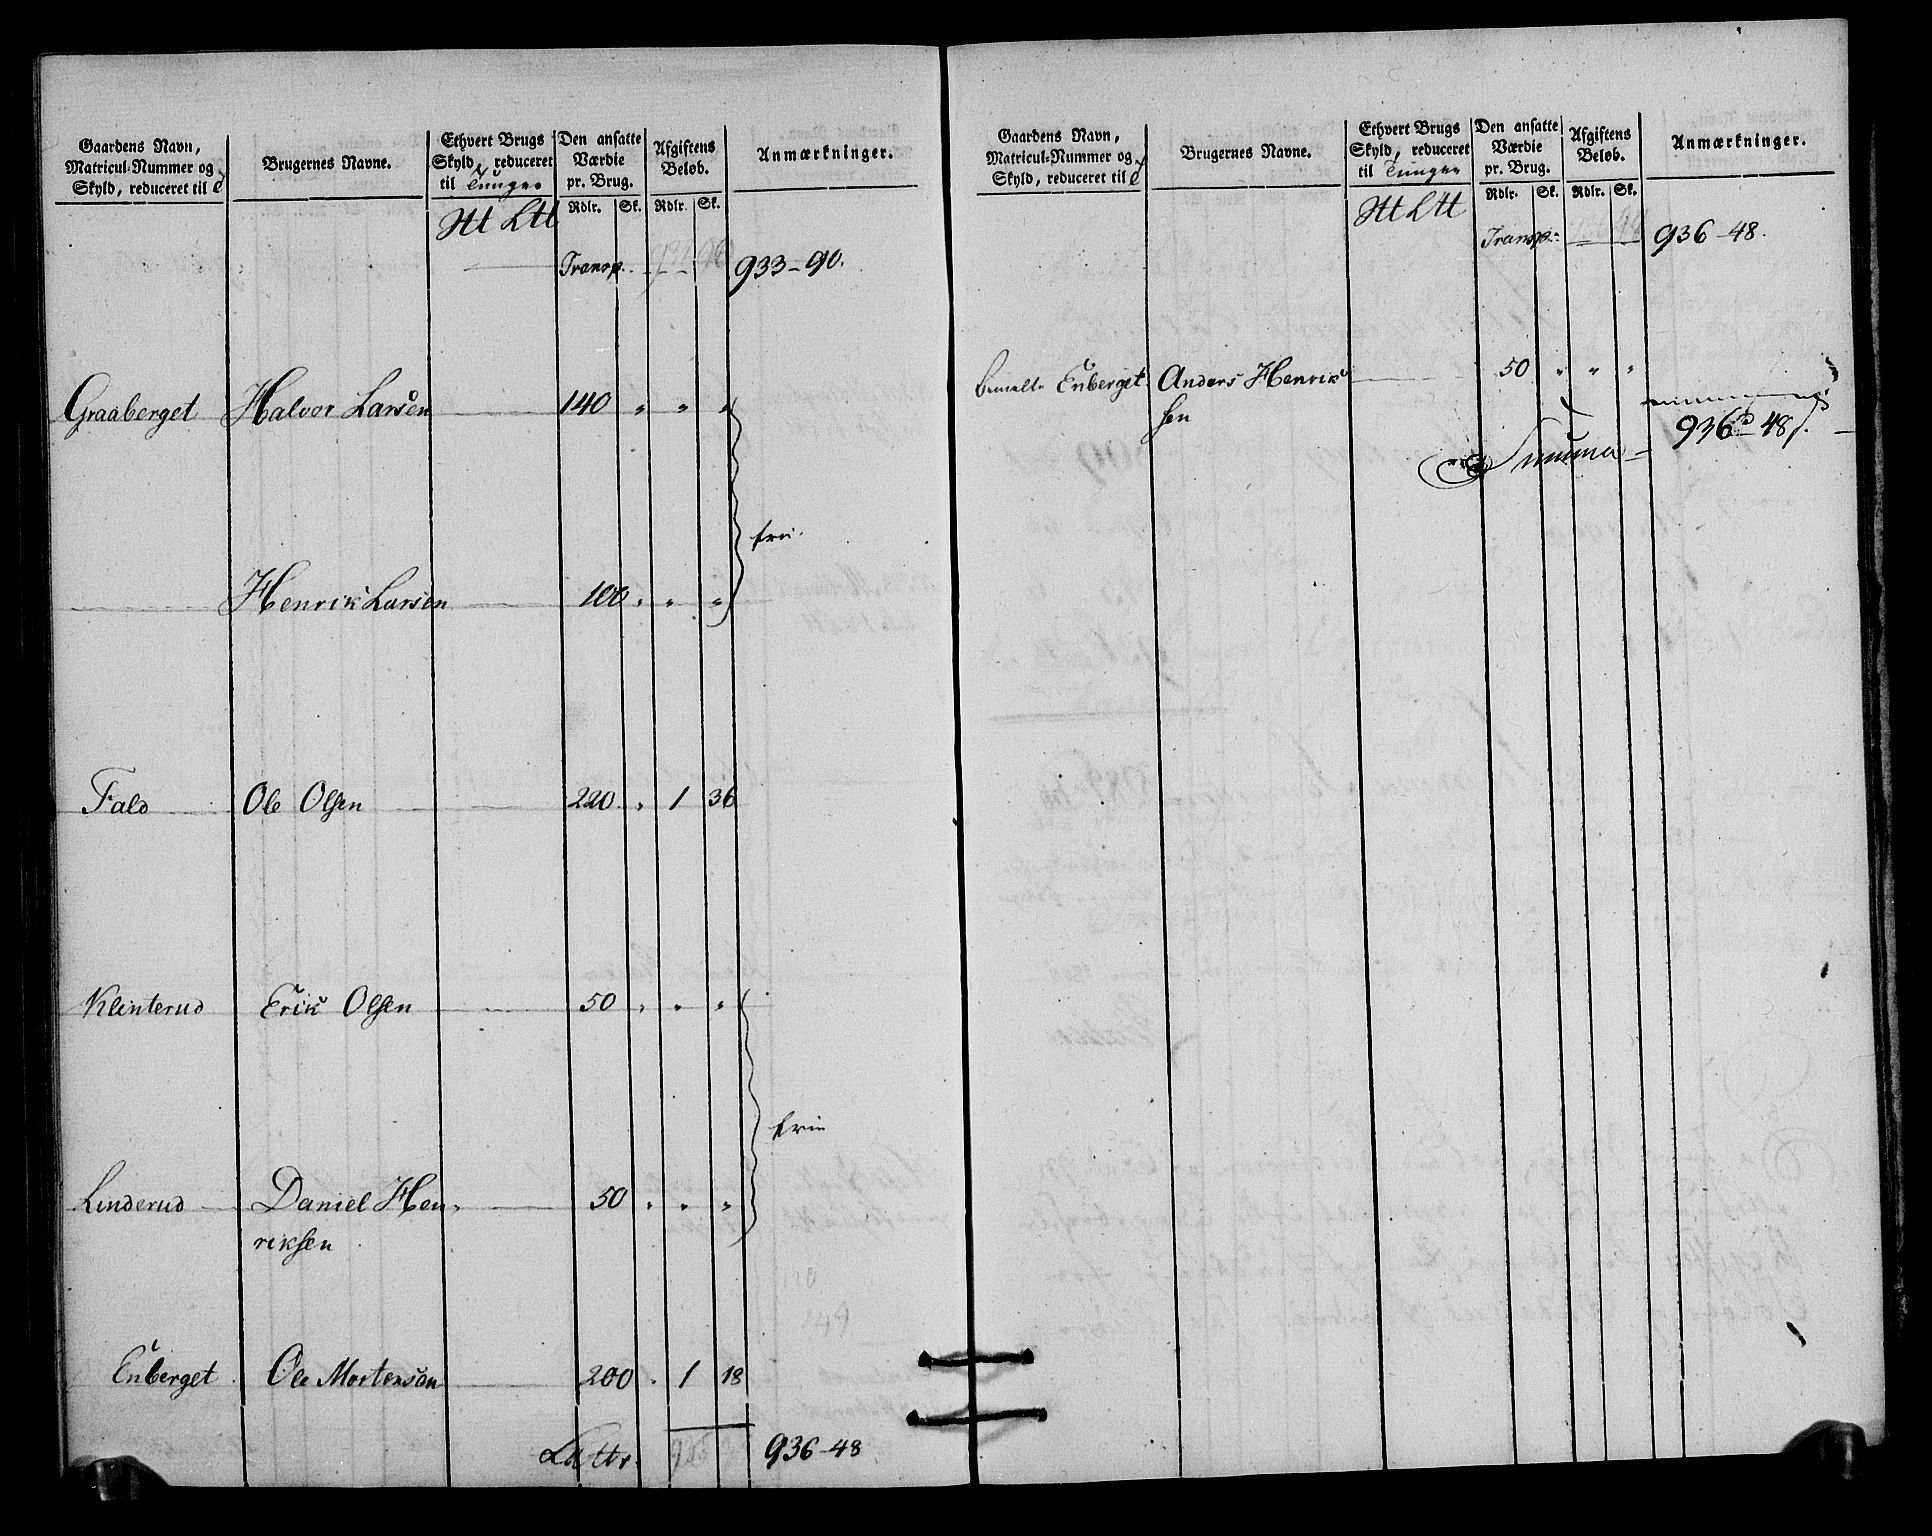 Gaardens Navn,
Matricul-Nummer og
Skyld, reduceret til
Brugernes Navne.
Ethvert Brugs
Skyld, reduceret
til Tunger
Den ansatte
Værdie
pr. Brug.
Afgiftens
Beløb.
Anmærkninger.
Rdlr. Sk. Rdlr. Sk.
Htt Ltt
Transp. 933-90.
Graaberget Halvor Larsen 140 " " "
frie
Henrik Larsen 100 " " "
Fald Ole Olsen 220 " 1 36
Klinterud Erik Olsen 50 " " "
frie
Linderud Daniel Hen-
riksen 50 " " "
Enberget Ole Mortensøn 200 " 1 18
Latus 936-48
Gaardens Navn,
Matricul-Nummer og
Skyld, reduceret til
Brugernes Navne.
Ethvert Brugs
Skyld, reduceret
til Tunger
Den ansatte
Værdie
pr. Brug.
Afgiftens
Beløb.
Anmærkninger.
Rdlr. Sk. Rdlr. Sk.
Htt Ltt
Transp. 936-48.
Enberget Anders Henrik
sen 50 " " "
Summa 936-48